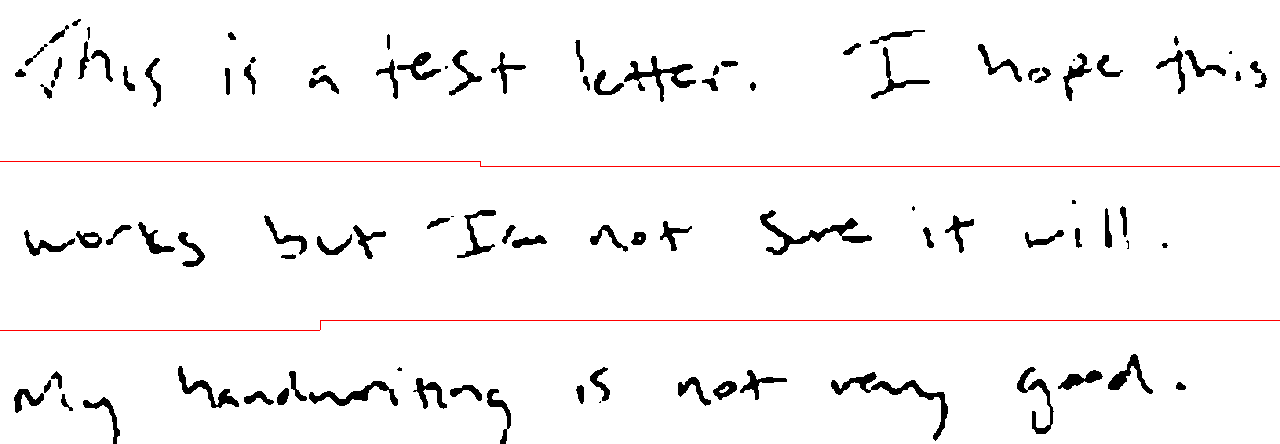 This is a test letter. I hope this
works but I'm not sure it will.
My handwriting is not very good.